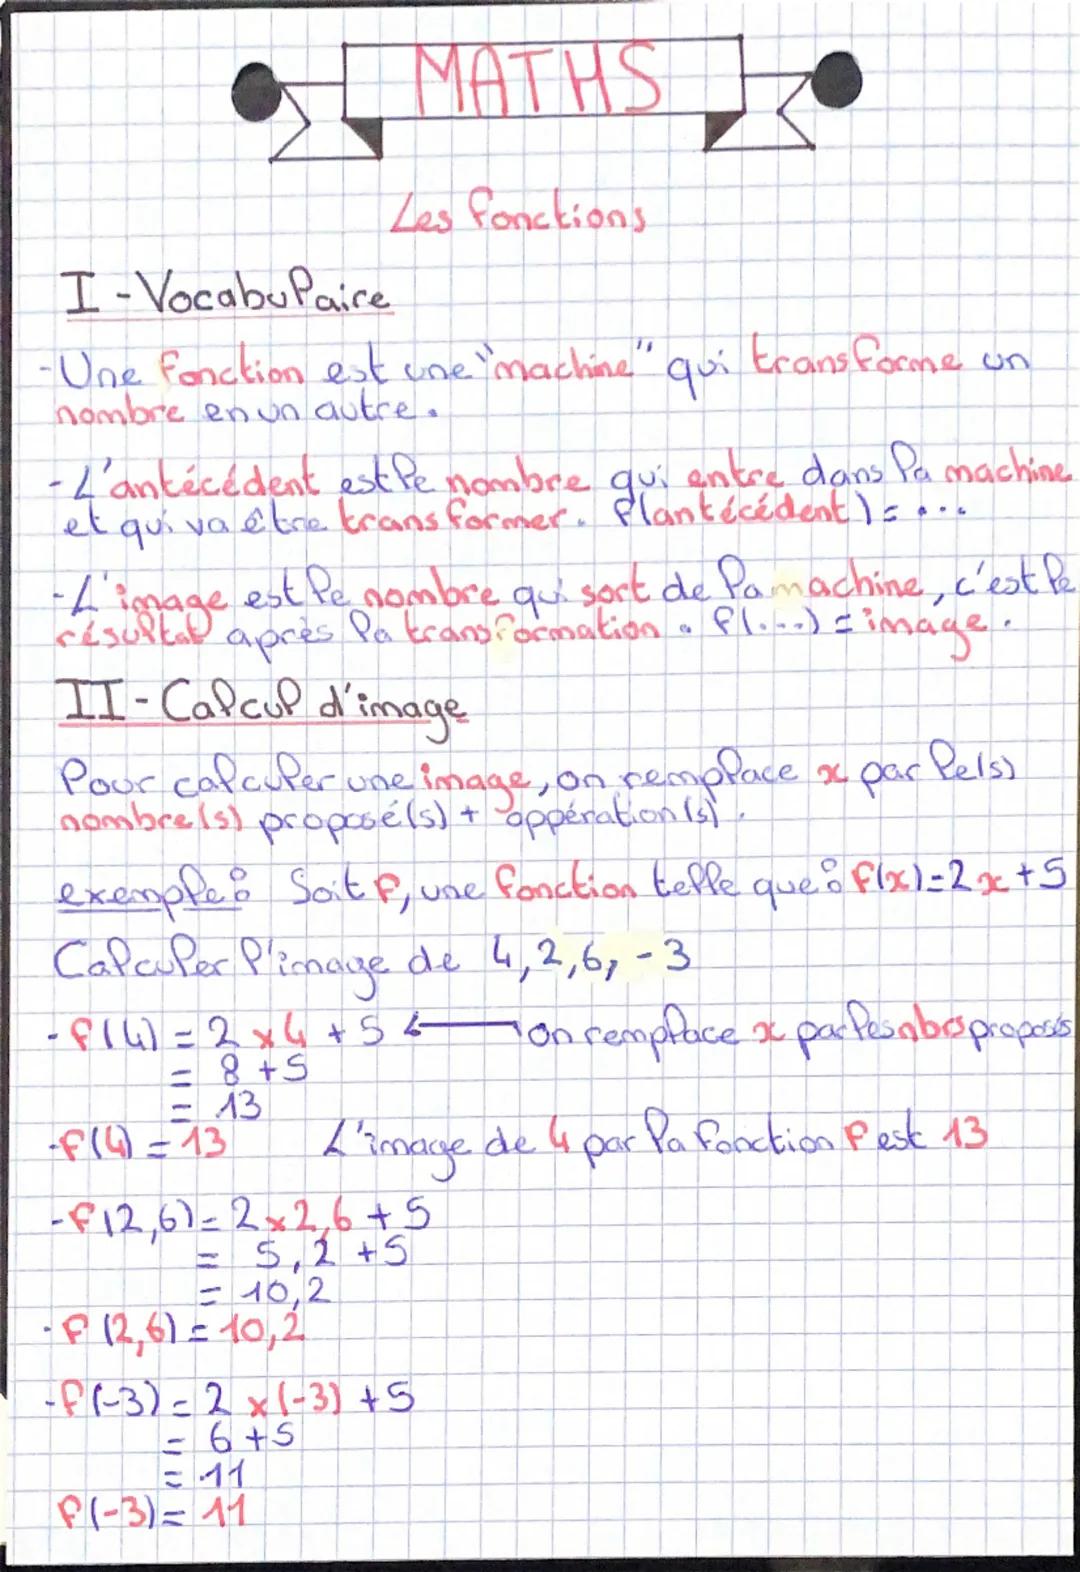 MATHS
Les fonctions
I - Vocabulaire
- Une fonction est une "machine" qui transforme un
nombre en un autre.
- L'antécédent est le nombre qui entre dans la machine
et qui va être transformer. f(antécédent) = ...
- L'image est le nombre qui sort de la machine, c'est le
résultat après la transformation. f(...) = image.
II - Calcul d'image
Pour calculer une image, on remplace x par le(s)
nombre(s) proposé(s) + oppération(s).
exemple : Soit f, une fonction telle que : f(x) = 2x + 5
Calculer l'image de 4, 2,6, -3
- f(4) = 2 x 4 + 5 ← on remplace x par les nbrs proposés
= 8 + 5
= 13
- f(4) = 13 L'image de 4 par la fonction f est 13
- f(2,6) = 2 x 2,6 + 5
= 5,2 + 5
= 10,2
- f(2,6) = 10,2
- f(-3) = 2 x (-3) + 5
= 6 + 5
= 11
f(-3) = 11